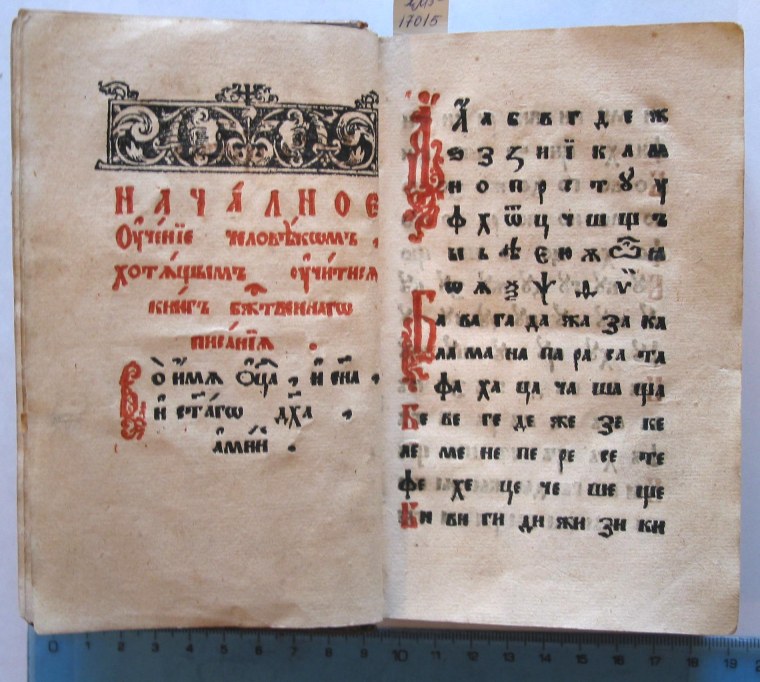 17015
НАЧА́ЛНОЕ
Оу҆че́нїе человѣ́кѡмъ ,
хотѧ́щымъ оу҆чи́тисѧ
кни́гъ бж҃твеннагѡ
писа́нїѧ .
Во и҆́мѧ Ѻ҆ц҃а̀ , и҆ сн҃а ,
и҆ ст҃а́гѡ дх҃а ,
а҆ми́нь .
а б в г д е ж
ѕ з и ї к л м
н о п р с т ꙋ у
ф х ѿ ц ч ш щ ъ
ы ь ѣ є ю ѫ
ѡ ѧ ѯ ѱ ѵ
Ба ва га да жа за ка
ла ма на па ра са та
фа ха ца ча ша ща
Бе ве ге де же зе ке
ле ме не пе ре се те
фе хе це че ше ще
Би ви ги ди жи зи ки
0 1 2 3 4 5 6 7 8 9 10 11 12 13 14 15 16 17 18 19